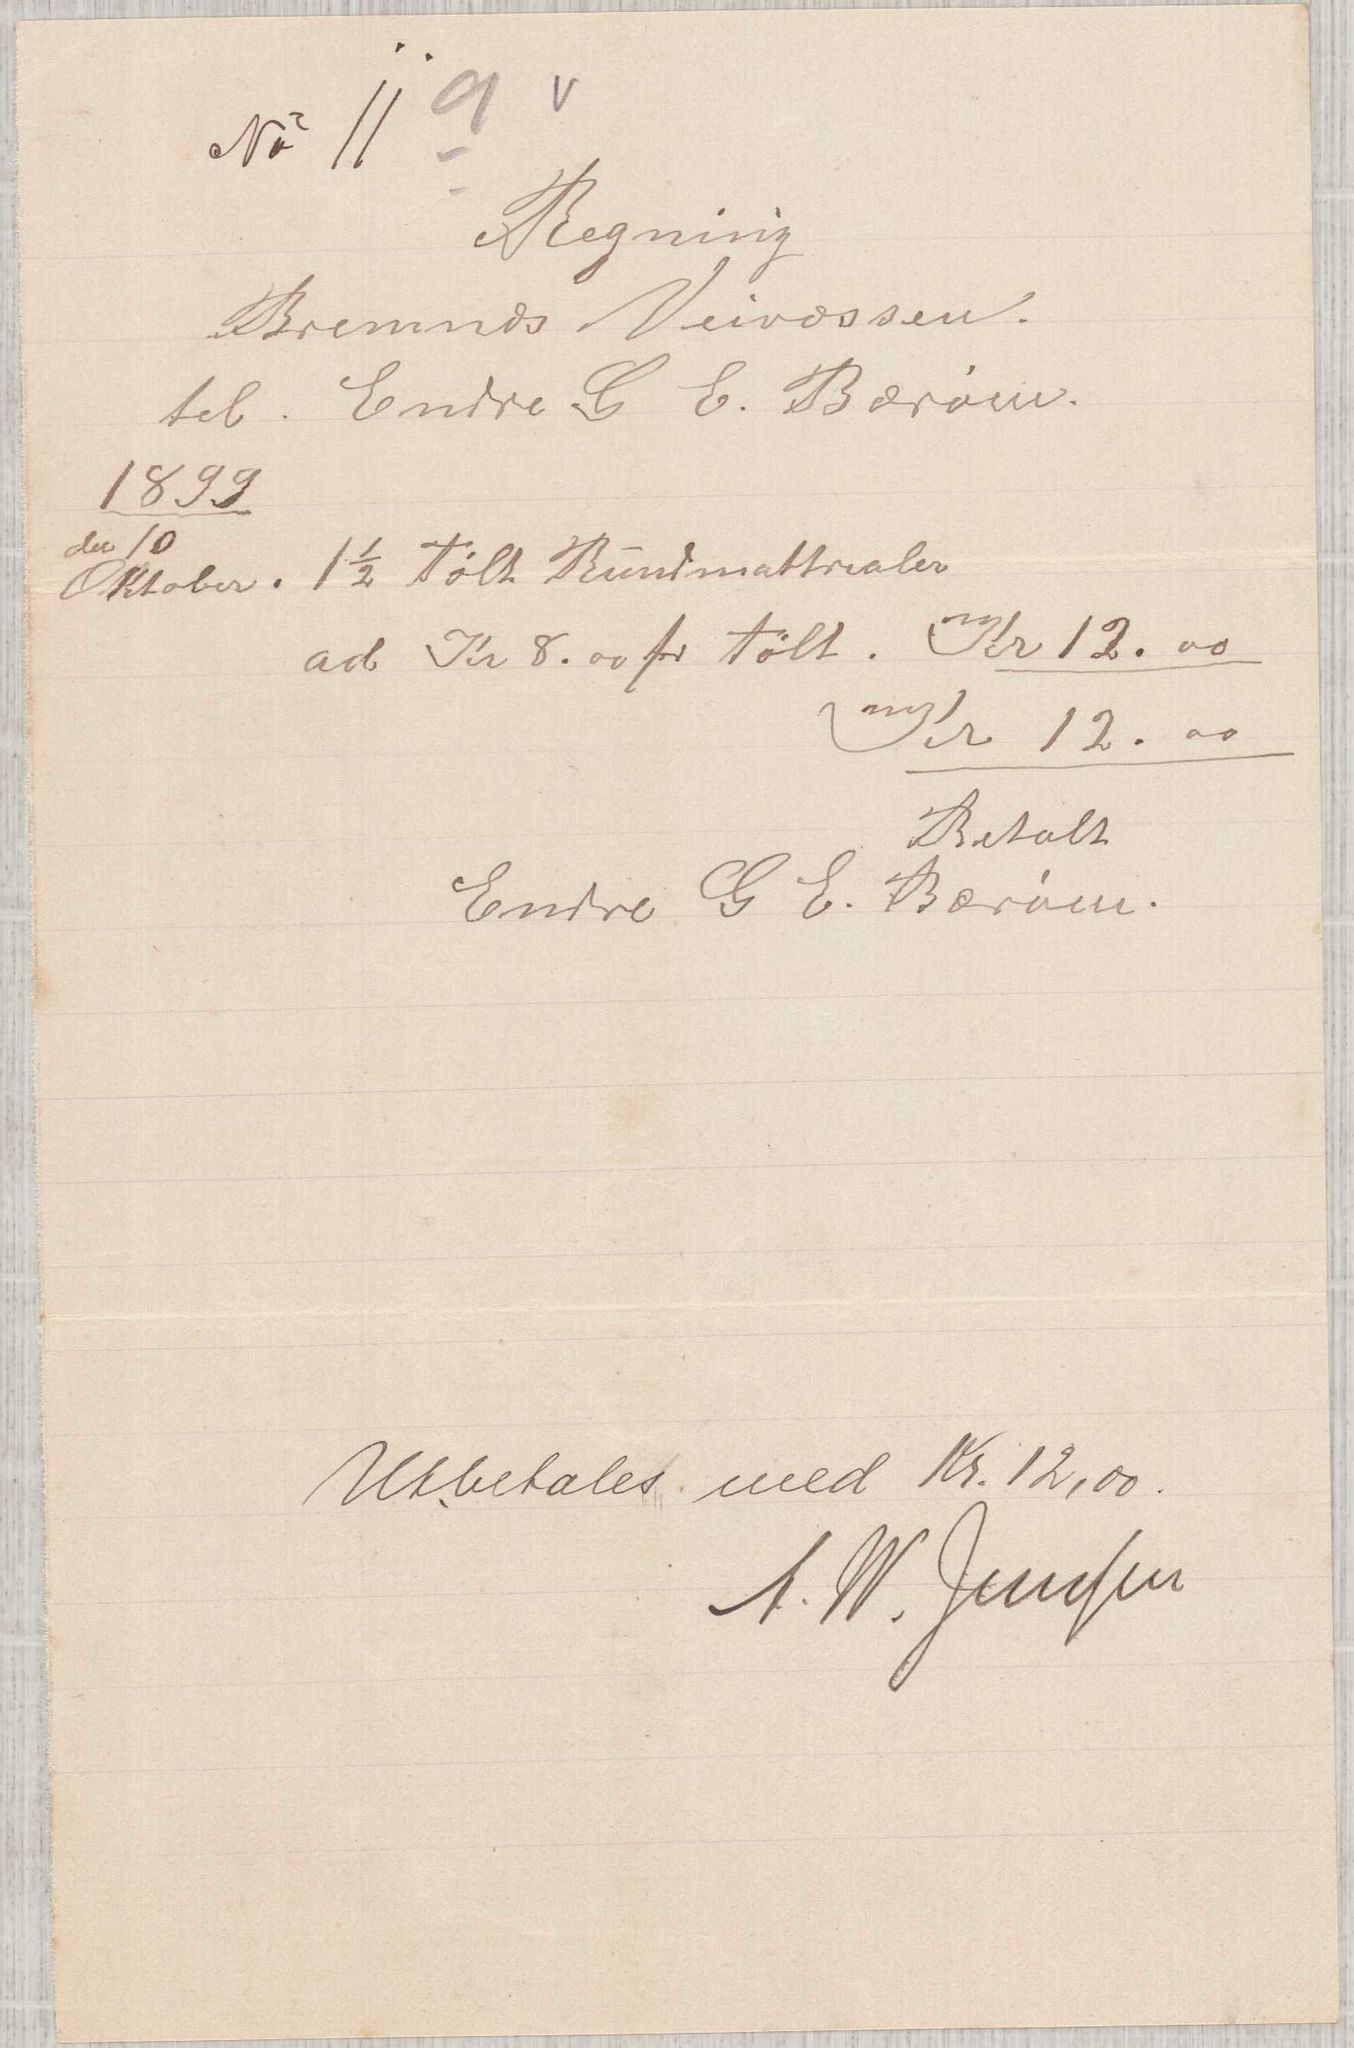 No 11 9 v
Regning
Bremnes Veivæssen.
tel. Endre G E. Bærøen.
1899
den 10
Oktober. 1½ Tølt Rundmattrealer
ad Kr 8.00 pr tølt. Kr 12.00
Kr 12.00
Betalt
Endre G E. Bærøen.
Utbetales med Kr. 12,00.
A. W. Jensen